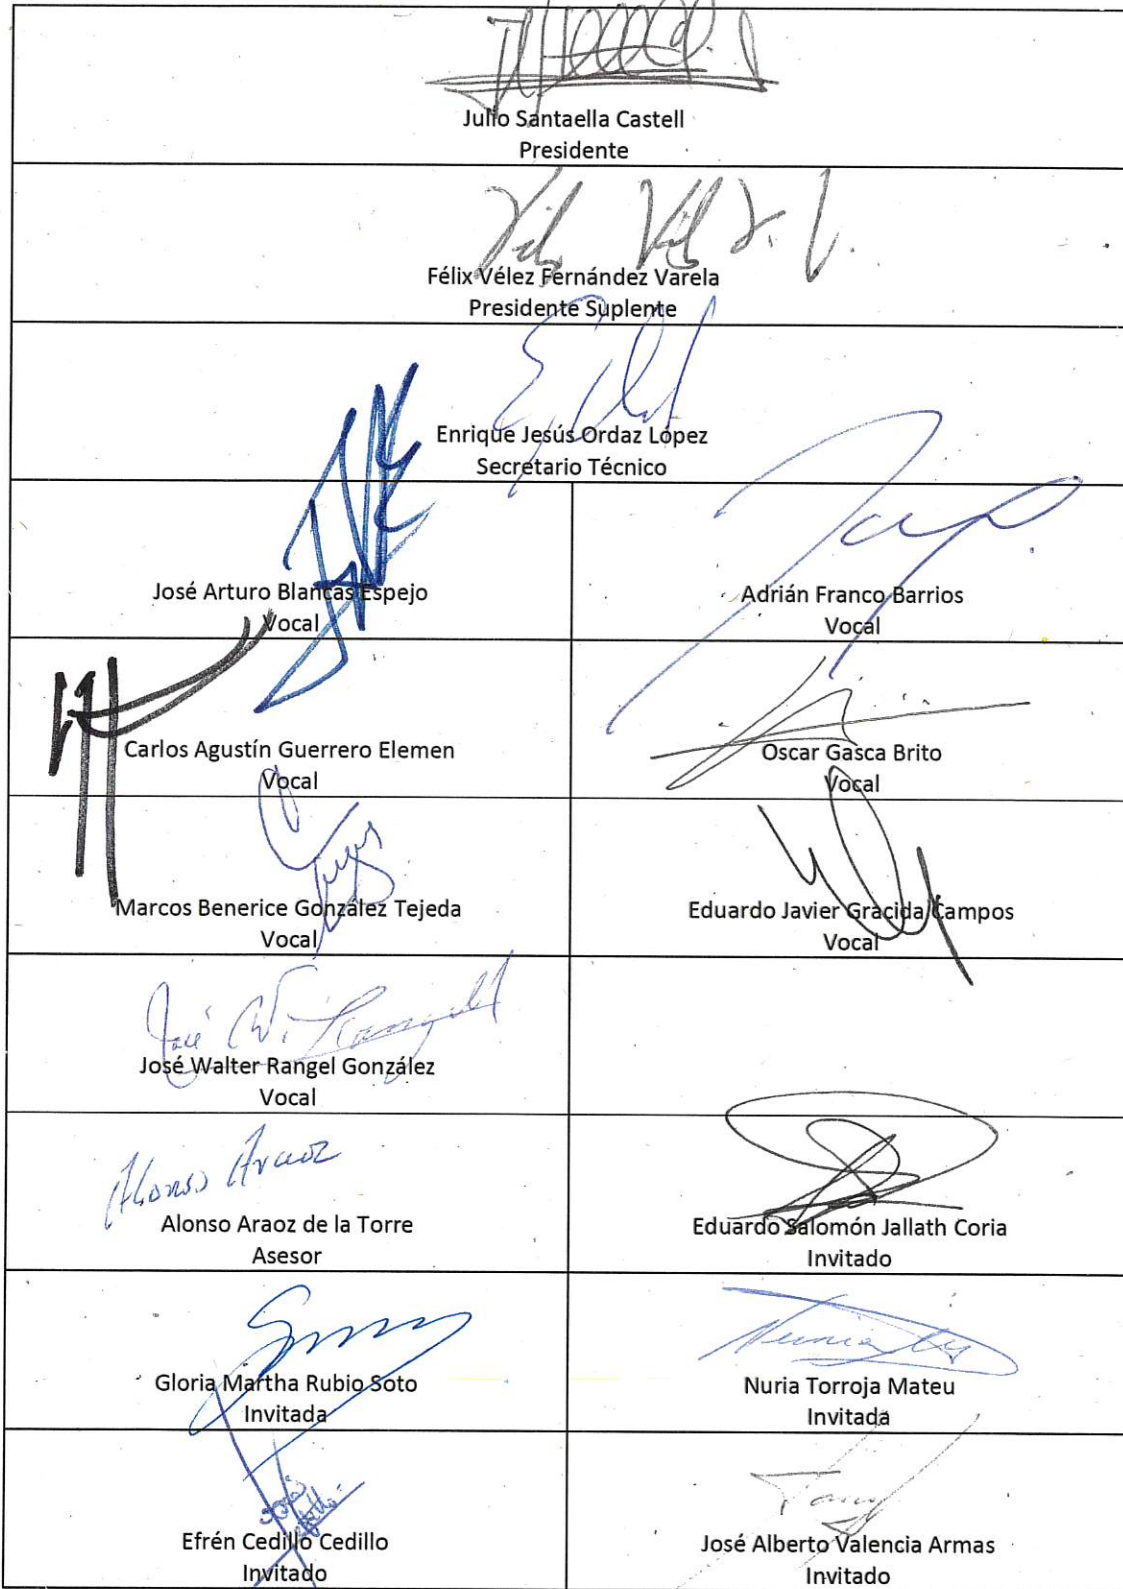 Julio Santaella Castell
Presidente
Félix Vélez Fernández Varela
Presidente Suplente
Enrique Jesús Ordaz López
Secretario Técnico
José Arturo Blancas Espejo
Vocal
Adrián Franco Barrios
Vocal
Carlos Agustín Guerrero Elemen
Vocal
Oscar Gasca Brito
Vocal
Marcos Benerice González Tejeda
Vocal
Eduardo Javier Gracida Campos
Vocal
José Walter Rangel González
Vocal
Alonso Araoz
Alonso Araoz de la Torre
Asesor
Eduardo Salomón Jallath Coria
Invitado
Gloria Martha Rubio Soto
Invitada
Nuria Torroja Mateu
Invitada
Efrén Cedillo Cedillo
Invitado
José Alberto Valencia Armas
Invitado